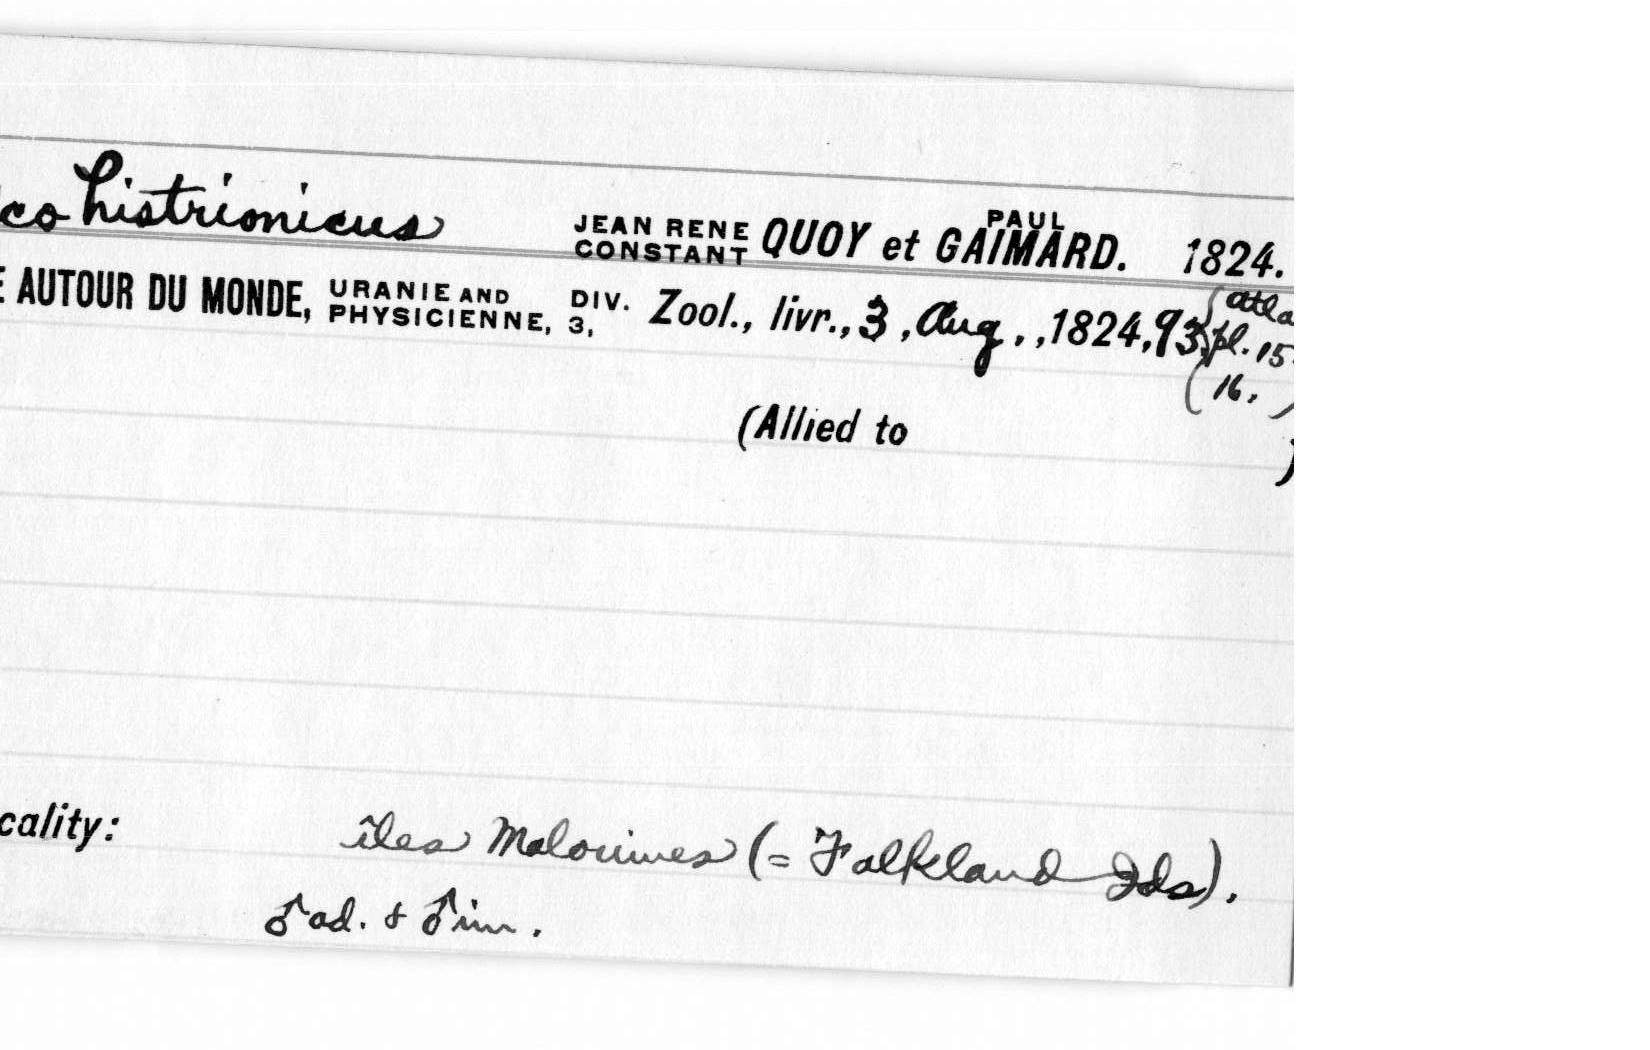 co histrionicus JEAN RENE CONSTANT QUOY et PAUL GAIMARD. 1824.
E AUTOUR DU MONDE, URANIE AND PHYSICIENNE, DIV. 3, Zool., livr., 3, Aug., ,1824, 93, (atla
pl. 15
16.)
(Allied to )
cality: îles Malouines (= Falkland Ids).
♂ ad. & ♂ im.